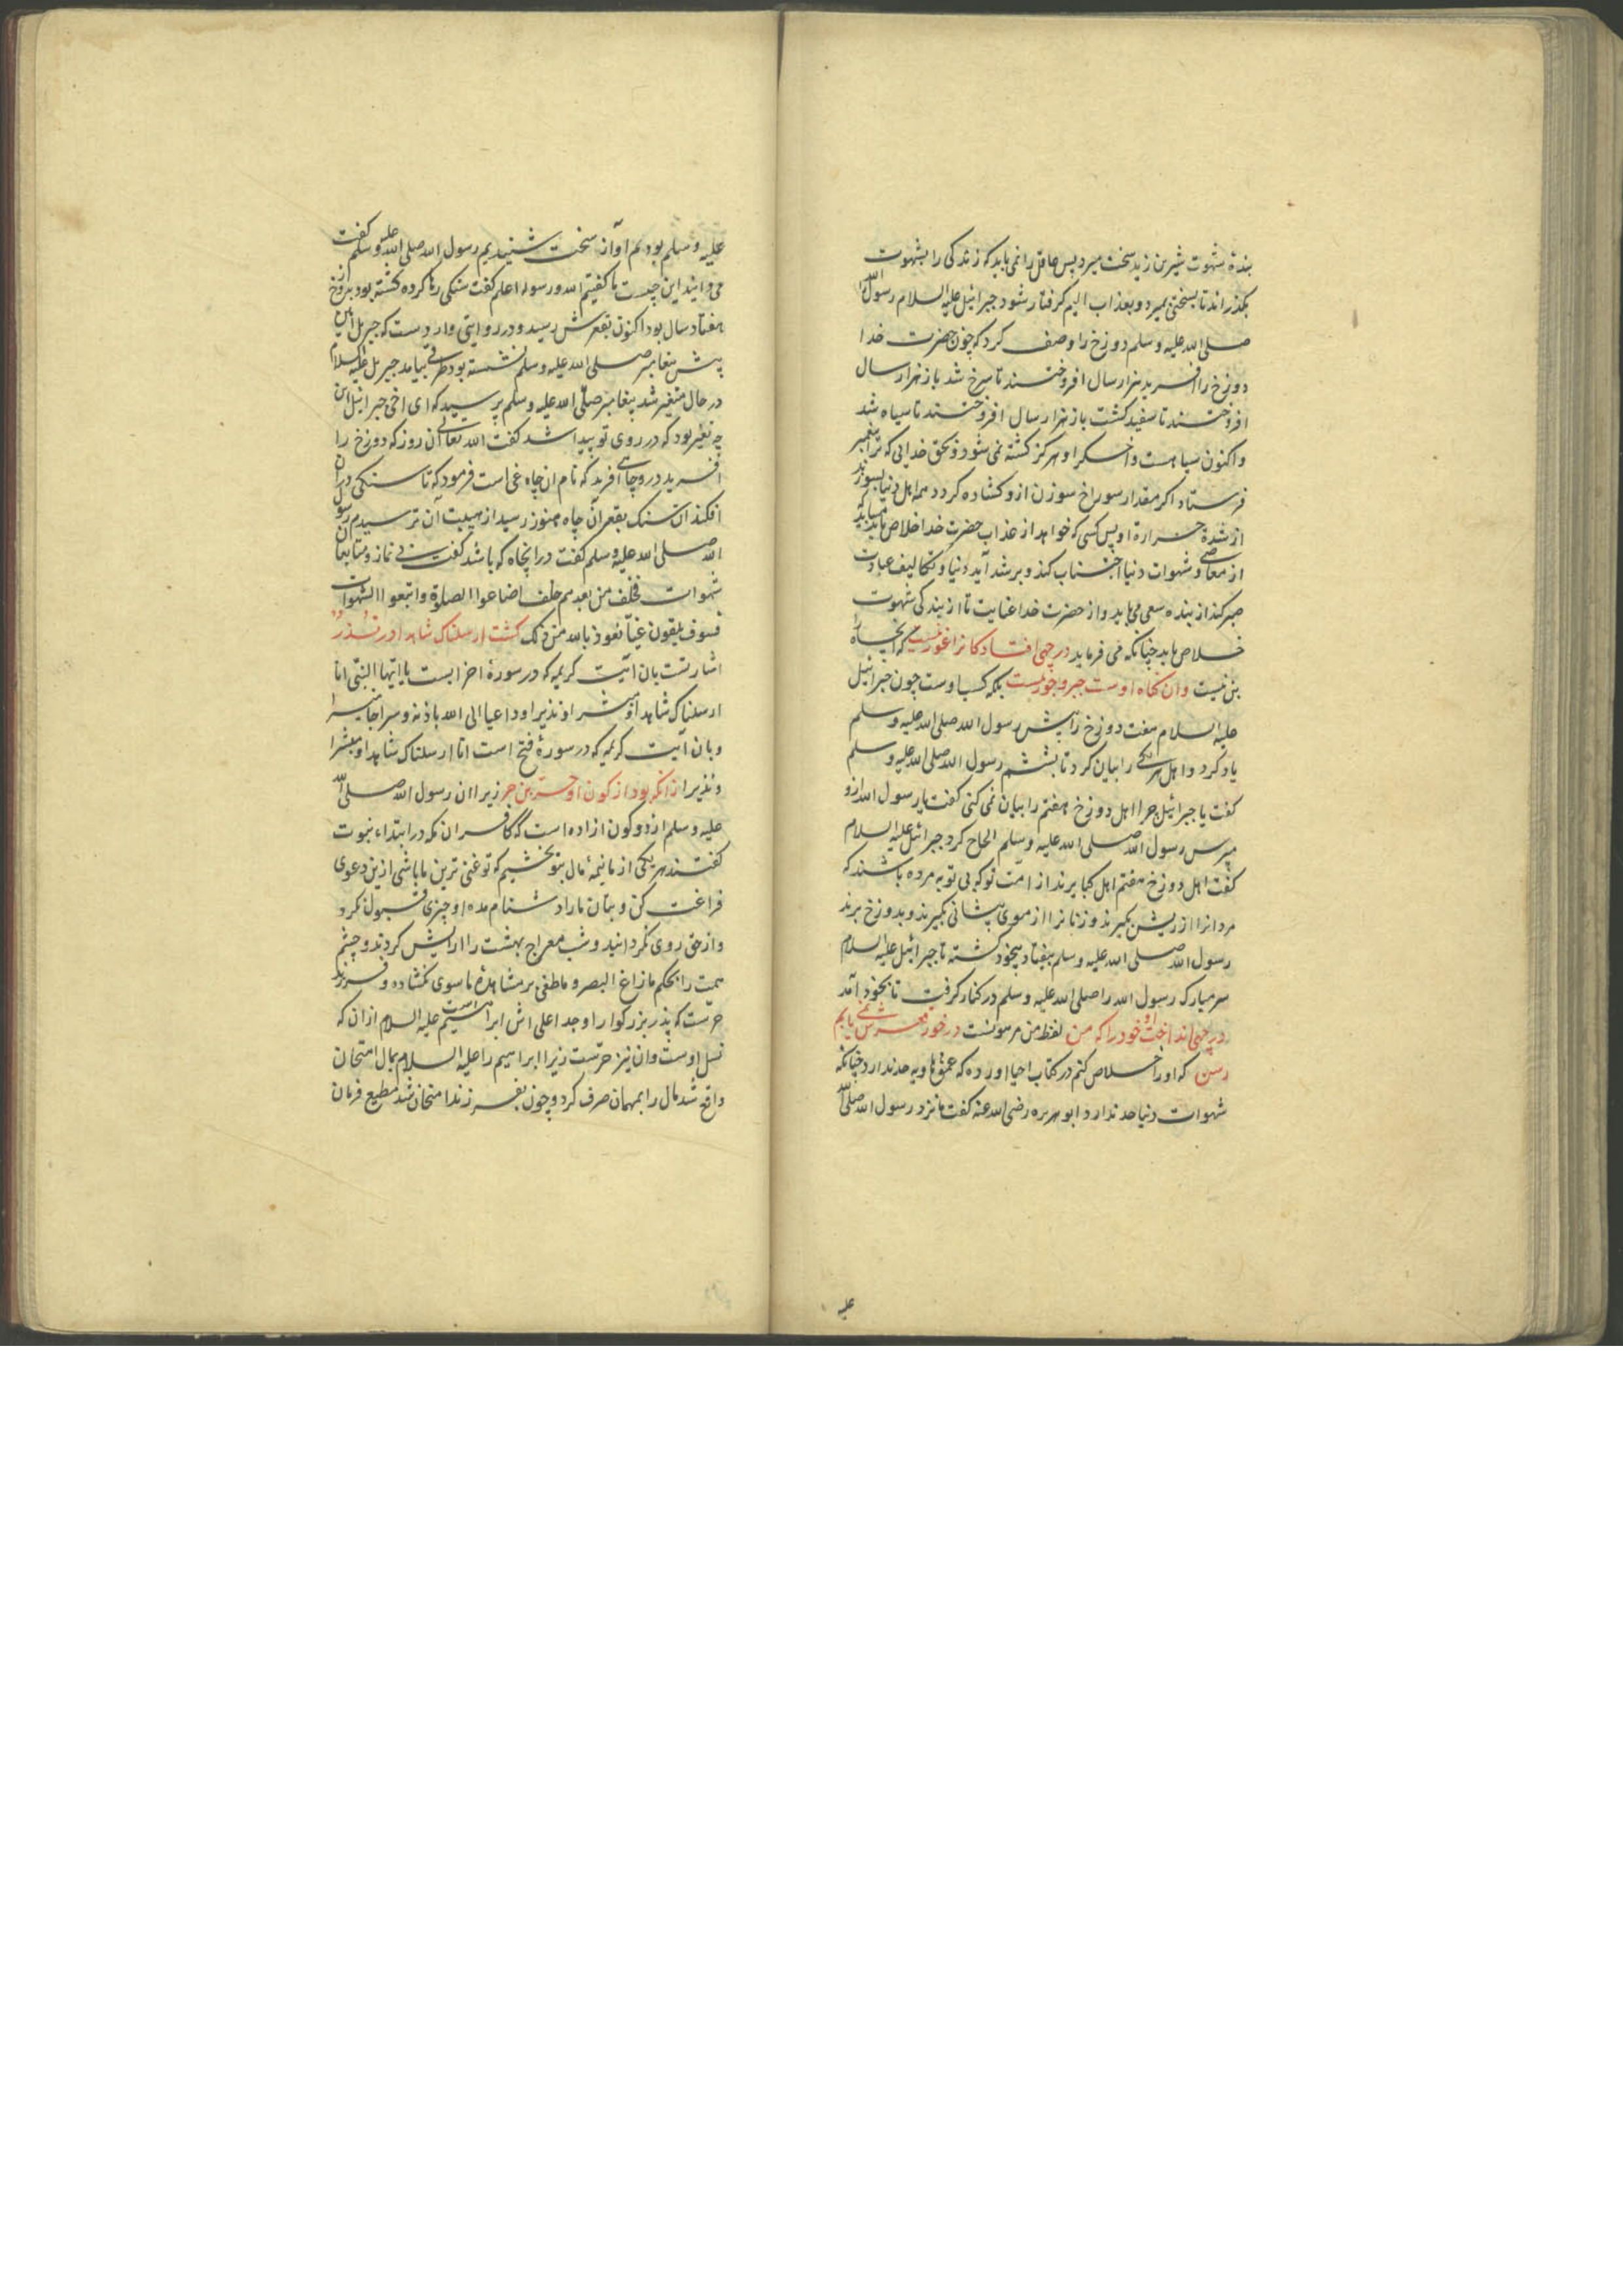 بندهٔ شهوت شیرین زید سخت میرد پس عاقل را نمی باید که زندکی را بشهوت
بکذراند تا بسختی بمیرد و بعذاب الیم کرفتار شود جبرائیل علیه السلام رسول الله را
صلی الله علیه وسلم دوزخ را وصف کرد که چون حضرت خدا
دوزخ را افرید هزار سال افروختند تا سرخ شد باز هزار سال
افروختند تا سفید کشت باز هزار سال افروختند تا سیاه شد
واکنون سیاهست واخکر او هرکز کشته نمی شود و بحق خدایی که ترا پیغمبر
فرستاد اکر مقدار سوراخ سوزن ازو کشاده کردد همه اهل دنیا بسوزند
از شدة حرارة او پس کسی که خواهد از عذاب حضرت خدا خلاص یابد میباید که
از معاصی و شهوات دنیا اجتناب کند و بر شدآید دنیا و تکالیف عبادت
صبر کند از بنده سعی می باید و از حضرت خدا عنایت تا از بندکی شهوت
خلاص یابد چنانکه می فرماید در چهی افتاد کانرا غور نیست که انچاه را
بن نیست وان کناه اوست جبر و جور نیست بلکه کسب اوست چون جبرائیل
علیه السلام هفت دوزخ را پیش رسول الله صلی الله علیه وسلم
یاد کرد و اهل هر یکی را بیان کرد تا بششم رسول الله صلی الله علیه وسلم
کفت یا جبرائیل چرا اهل دوزخ هفتم را بیان نمی کنی کفت یا رسول الله ازو
مپرس رسول الله صلی الله علیه وسلم الحاح کرد جبرائیل علیه السلام
کفت اهل دوزخ هفتم اهل کبایرند از امت تو که بی توبه مرده باشند که
مردانرا از ریش بکیرند و زنانرا از موی پیشانی بکیرند و بدوزخ برند
رسول الله صلی الله علیه وسلم بیفتاد بیخود کشته تا جبرائیل علیه السلام
سر مبارک رسول الله را صلی الله علیه وسلم در کنار کرفت تا بخود آمد
در چهی انداخت او خود را که من لفظ من مرمونست در خور قعرش نمی یابم
رسن که اورا خلاص کنم در کتاب احیا اورده که عمق هاویه حد ندارد چنانکه
شهوات دنیا حد ندارد ابو هریره رضی الله عنه کفت ما نزد رسول الله صلی الله
علیه
علیه وسلم بودیم اواز سخت شنیدیم رسول الله صلی الله علیه وسلم کفت
می دانید این چیست ما کفتیم الله ورسوله اعلم کفت سنکی رها کرده کشته بود بدوزخ از
هفتاد سال بود اکنون بقعرش رسید و در روایتی وارد ست که جبریل امین
پیش پیغامبر صلی الله علیه وسلم نشسته بود طراقی بیامد جبریل علیه السلام
در حال متغیر شد پیغامبر صلی الله علیه وسلم پرسید که ای اخی جبرائیل این
چه تغیر بود که در روی تو پیدا شد کفت الله تعالی آن روز که دوزخ را
افرید درو چاهی افرید که نام ان چاه غی است فرمود که تا سنکی دران
افکند ان سنک بقعر آن چاه هنوز رسید از هیبت آن ترسیدم رسول
الله صلی الله علیه وسلم کفت در انچاه که باشد کفت بی نماز و متابعان
شهوات فخلف من بعدهم خلف اضاعوا الصلوة واتبعوا الشهوات
فسوف یلقون غیّا نعوذ بالله من ذلک کشت ارسلناک شاهد او نذر
اشارتست بان آیت کریمه که در سورهٔ احزابست یا ایها النبی انا
ارسلناک شاهدا ومبشرا ونذیرا وداعیا الی الله باذنه وسراجا منیرا
وبان آیت کریمه که در سورهٔ فتح است انا ارسلناک شاهدا ومبشرا
ونذیرا زانکه بود از کون او حر بن حر زیرا ان رسول الله صلی الله
علیه وسلم از دو کون ازاده است که کافران مکه در ابتداء نبوت
کفتند هر یکی از ما نیمهٔ مال بتو بخشیم که تو غنی ترین ما باشی ازین دعوی
فراغت کن و بتان ما را دشنام مده او چیزی قبول نکرد
و از حق روی نکردانید و شب معراج بهشت را ارایش کردند و چشم
همت را بحکم ما زاغ البصر وما طغی بر مشاهدهٔ ما سوی نکشاده و فرزند
حرّست که پدر بزرکوار او جد اعلی اش ابراهیم است علیه السلام ازان که
نسل اوست وان نیز حرّست زیرا ابراهیم را علیه السلام بمال امتحان
واقع شد مال را بمهمان صرف کرد و چون بفرزند امتحان شد مطیع فرمان